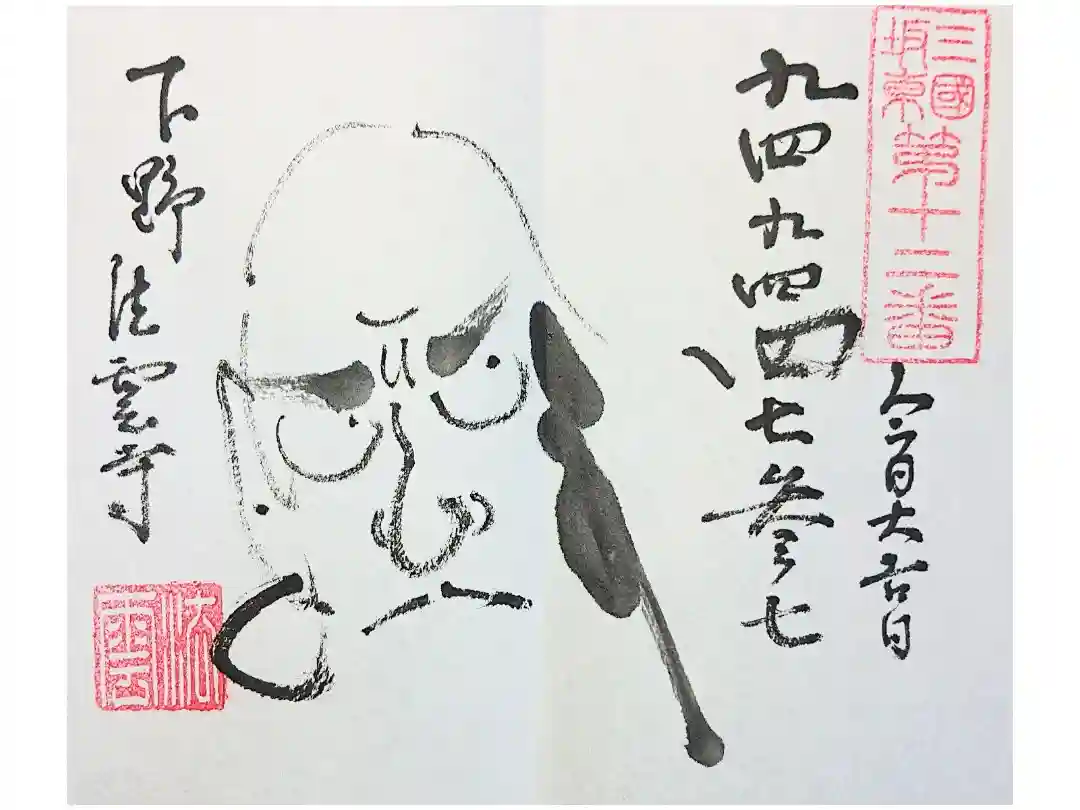 三國
坂東
第十二番
今日大吉日
九四九四四七参七
下野法雲寺
法雲